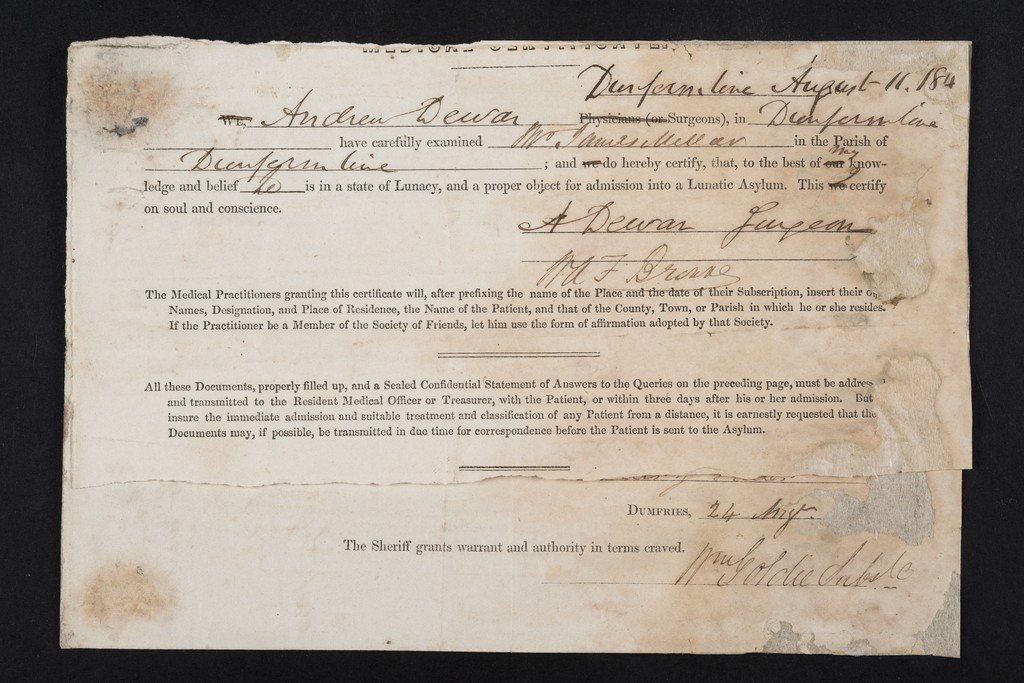 MEDICAL CERTIFICATE
Dunfermline August 11. 184
We, Andrew Dewar Physicians (or Surgeons), in Dunfermline
have carefully examined Mr. James Millar in the Parish of
Dunfermline ; and we do hereby certify, that, to the best of our my know-
ledge and belief he is in a state of Lunacy, and a proper object for admission into a Lunatic Asylum. This we certify
on soul and conscience.
A Dewar Surgeon
W A F Browne
The Medical Practitioners granting this certificate will, after prefixing the name of the Place and the date of their Subscription, insert their o
Names, Designation, and Place of Residence, the Name of the Patient, and that of the County, Town, or Parish in which he or she resides.
If the Practitioner be a Member of the Society of Friends, let him use the form of affirmation adopted by that Society.
All these Documents, properly filled up, and a Sealed Confidential Statement of Answers to the Queries on the preceding page, must be addre
and transmitted to the Resident Medical Officer or Treasurer, with the Patient, or within three days after his or her admission. But
insure the immediate admission and suitable treatment and classification of any Patient from a distance, it is earnestly requested that the
Documents may, if possible, be transmitted in due time for correspondence before the Patient is sent to the Asylum.
Dumfries, 24 Augt.
The Sheriff grants warrant and authority in terms craved.
Wm Goldie Subste